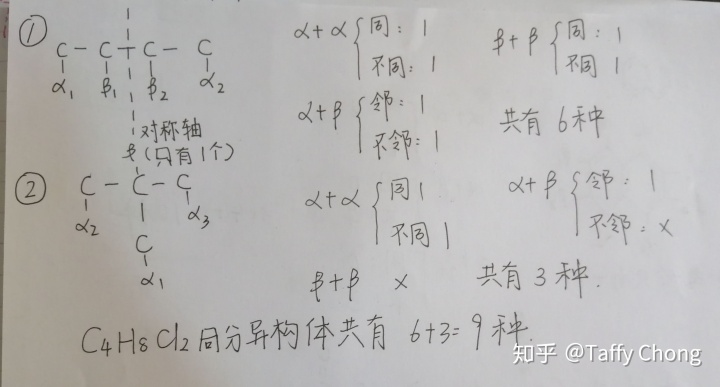 ① C — C — C — C
α₁ β₁ β₂ α₂
对称轴
(只有1个)
α+α { 同: 1
不同: 1
β+β { 同: 1
不同 1
α+β { 邻: 1
不邻: 1
共有 6种
② β
C — C — C
α₂ α₃
C
α₁
α+α { 同 1
不同 1
α+β { 邻: 1
不邻: ×
β+β ×
共有 3 种.
C4H8Cl2 同分异构体共有 6+3=9 种.
知乎 @Taffy Chong